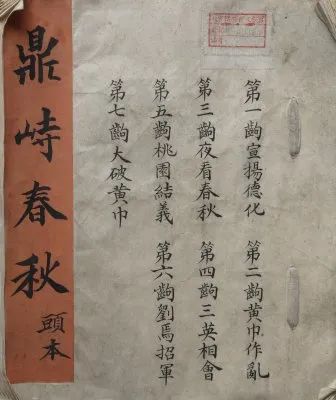 鼎峙春秋 頭本
第一齣宣揚德化 第二齣黃巾作亂
第三齣夜看春秋 第四齣三英相會
第五齣桃園結義 第六齣劉焉招軍
第七齣大破黃巾